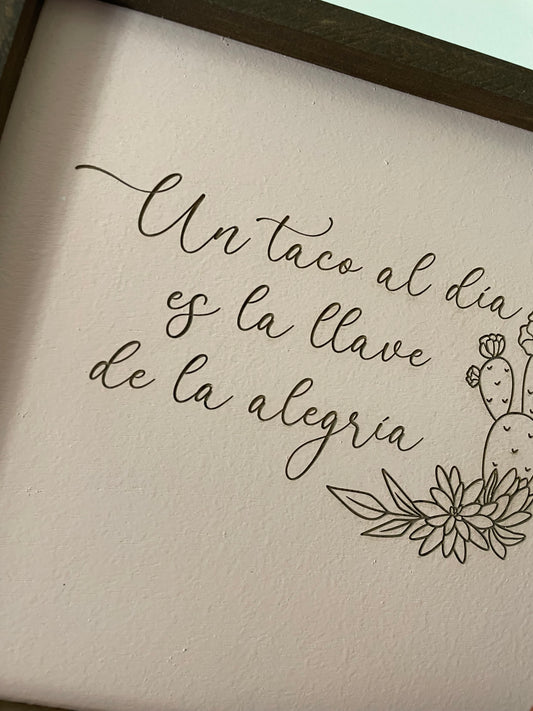 Un taco al día
es la llave
de la alegría